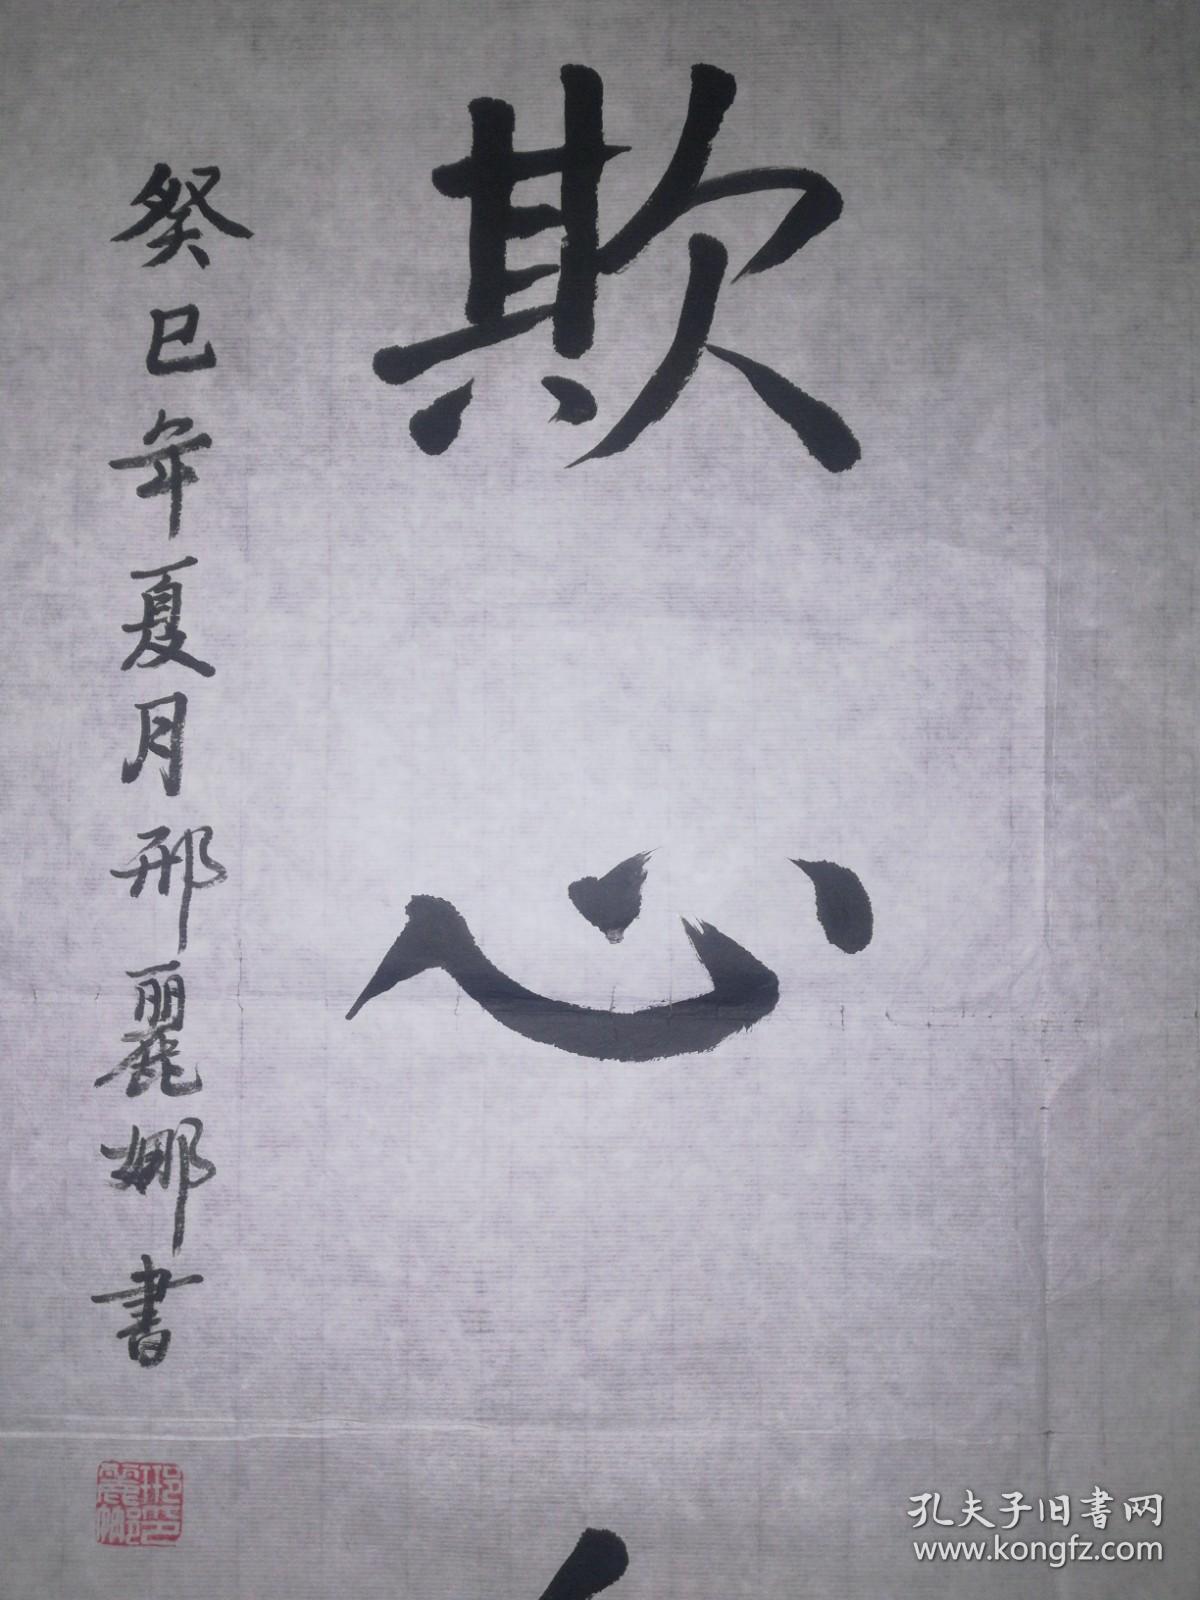 欺心
癸巳年夏月邢麗娜書
孔夫子旧书网
www.kongfz.com